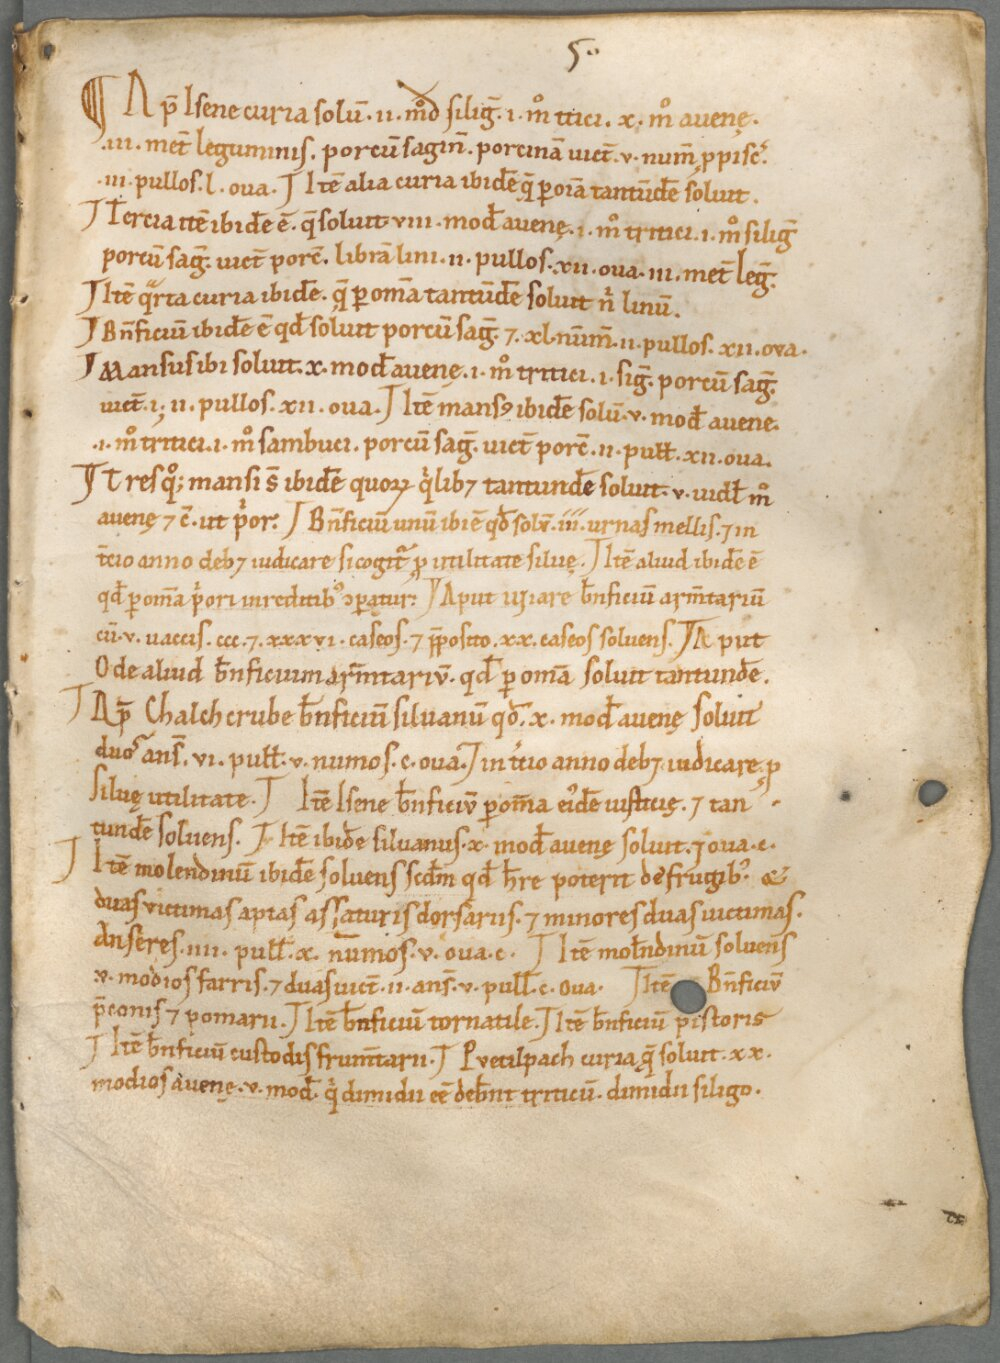 5.
¶ Ap̄ Isene curia solū. ii. m̊d siliḡ. i. m̊ tt̄ici. x. m̊ avenę.
.iii. met̄ leguminis. porcū sagin̄. porcinā uict̄. v. num̄ ꝓ pisc̄.
.iii. pullos. l. ova. ⁋ Itē alia curia ibidē q̄ ꝑ oīa tantūdē soluit.
⁋ Tercia itē ibidē ē. q̄ soluit viii. mod̄ avenę. i. m̊ tritici. i. m̊ siliḡ
porcū saḡ. uict̄ porc̄. librā lini. ii. pullos. xii. ova. iii. met̄ leḡ.
⁋ Itē qᵃrta curia ibidē. q̄ ꝑ om̄a tantūdē soluit n̄ linū.
⁋ Bn̄ficiū ibidē ē qd̄ soluit porcū saḡ. ⁊. xl. nūm̄. ii. pullos. xii. ova.
⁋ Mansus ibi soluit. x. mod̄ avenę. i. m̊ tritici. i. siḡ. porcū saḡ.
uict̄. i; ii. pullos. xii. ova. ⁋ Itē mansꝰ ibidē solū. v. mod̄ avene.
.i. m̊ tritici. i. m̊ sambuci. porcū saḡ. uict̄ porc̄. ii. pull̄. xii. ova.
⁋ Tres qͦꝫ mansi s̄ ibidē quoꝝ qͥlibꝫ tantundē soluit. v. uidl̄ m̊
avenę ⁊ c̄. ut pͥor. ⁋ Bn̄ficiū unū ibi ē qd̄ solv̄. iii. urnas mellis. ⁊ in
t̄cio anno debꝫ iudicare si cogitᷣ ꝓ utilitate siluę. ⁋ Itē aliud ibidē ē
qd̄ ꝑ om̄a pͥori in reditibꝰ ꝯparatur. ⁋ Aput viare bn̄ficiū arm̄tariū
cū. v. vaccis. ccc. ⁊. xxxvi. caseos. ⁊ p̄posito. xx. caseos soluens. ⁋ Aput
Ode aliud bn̄ficium arm̄tariv̄. qd̄ ꝑ omā soluit tantundē.
⁋ Ap̄ Chalchcrube bn̄ficiū siluanū qd̄. x. mod̄ avenę soluit
duos ans̄. vi. pull̄. v. numos. c. ova. ⁋ in t̄cio anno debꝫ iudicare ꝓ
siluę utilitate. ⁋ Itē Isene bn̄ficiv̄ ꝑ om̄a eiͥdē iusticię. ⁊ tan
tundē soluens. ⁋ Itē ibidē siluanus. x. mod̄ avenę soluit. ⁊ ova. c.
⁋ Itē molendinū ibidē soluens scd̄m qd̄ hr̄e poterit de frugibꝰ. &
duas victimas aptas assaturis dorsariis. ⁊ minores duas uictimas.
Anseres. iiii. pull̄. x. nūmos. v. ova. c. ⁋ Itē mol̄ndinū soluens
v. modios farris. ⁊ duas uict̄. ii. ans̄. v. pull̄. c. ova. ⁋ Itē Bn̄ficiv̄
p̄conis ⁊ pomarii. ⁋ Itē bn̄ficiū tornatile. ⁋ Itē bn̄ficiū pistoris
⁋ Itē bn̄ficiū custodis frum̄tarii. ⁋ Pvetilpach curia q̄ soluit. xx.
modios avenę. v. mod̄. qͥ dimidii eē deb̄nt triticū. dimidii siligo.